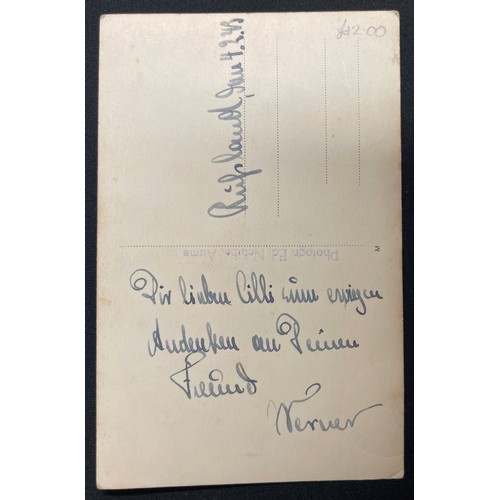 £12.00
Rußland, den 4.2.43
Photogr. Ed. Auma
M
Dir lieben Cilli zum ewigen
Andenken an Deinen
Freund
Werner